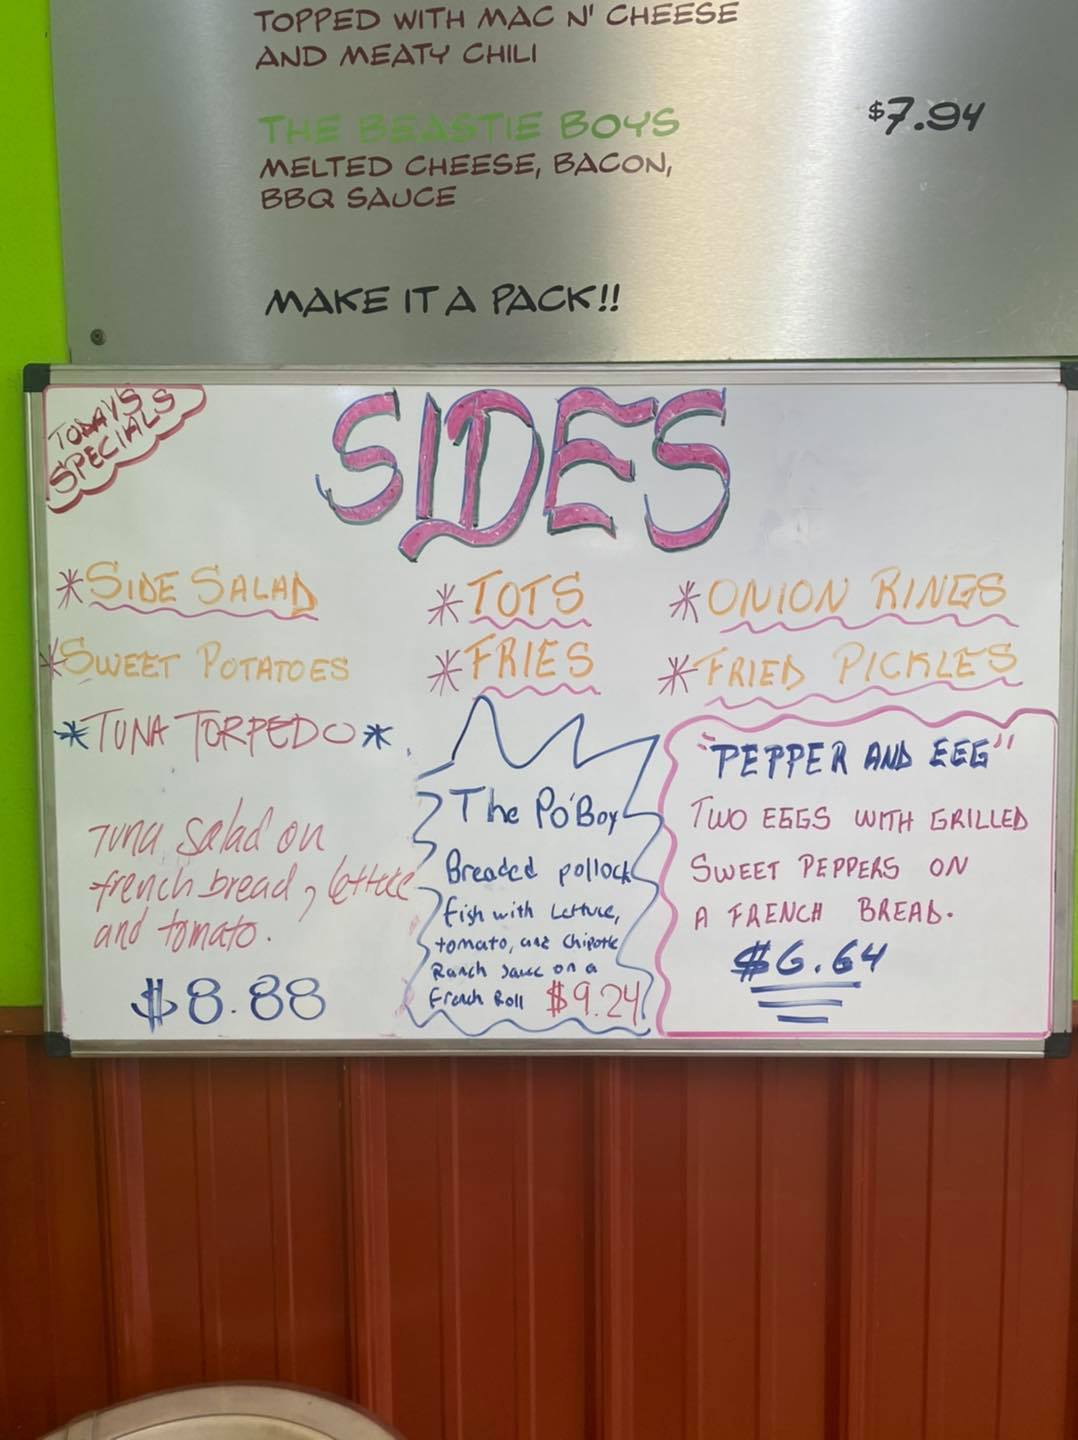 TOPPED WITH MAC N' CHEESE
AND MEATY CHILI
THE BEASTIE BOYS $7.94
MELTED CHEESE, BACON,
BBQ SAUCE
MAKE IT A PACK!!
TODAYS
SPECIALS
SIDES
*SIDE SALAD
*SWEET POTATOES
*TOTS
*FRIES
*ONION RINGS
*FRIED PICKLES
*TUNA TORPEDO*
Tuna Salad on
french bread, lettuce
and tomato.
$8.88
The Po'Boy
Breaded pollock
Fish with Lettuce,
tomato, and Chipotle
Ranch Sauce on a
French Roll $9.24
"PEPPER AND EGG"
TWO EGGS WITH GRILLED
SWEET PEPPERS ON
A FRENCH BREAD.
$6.64